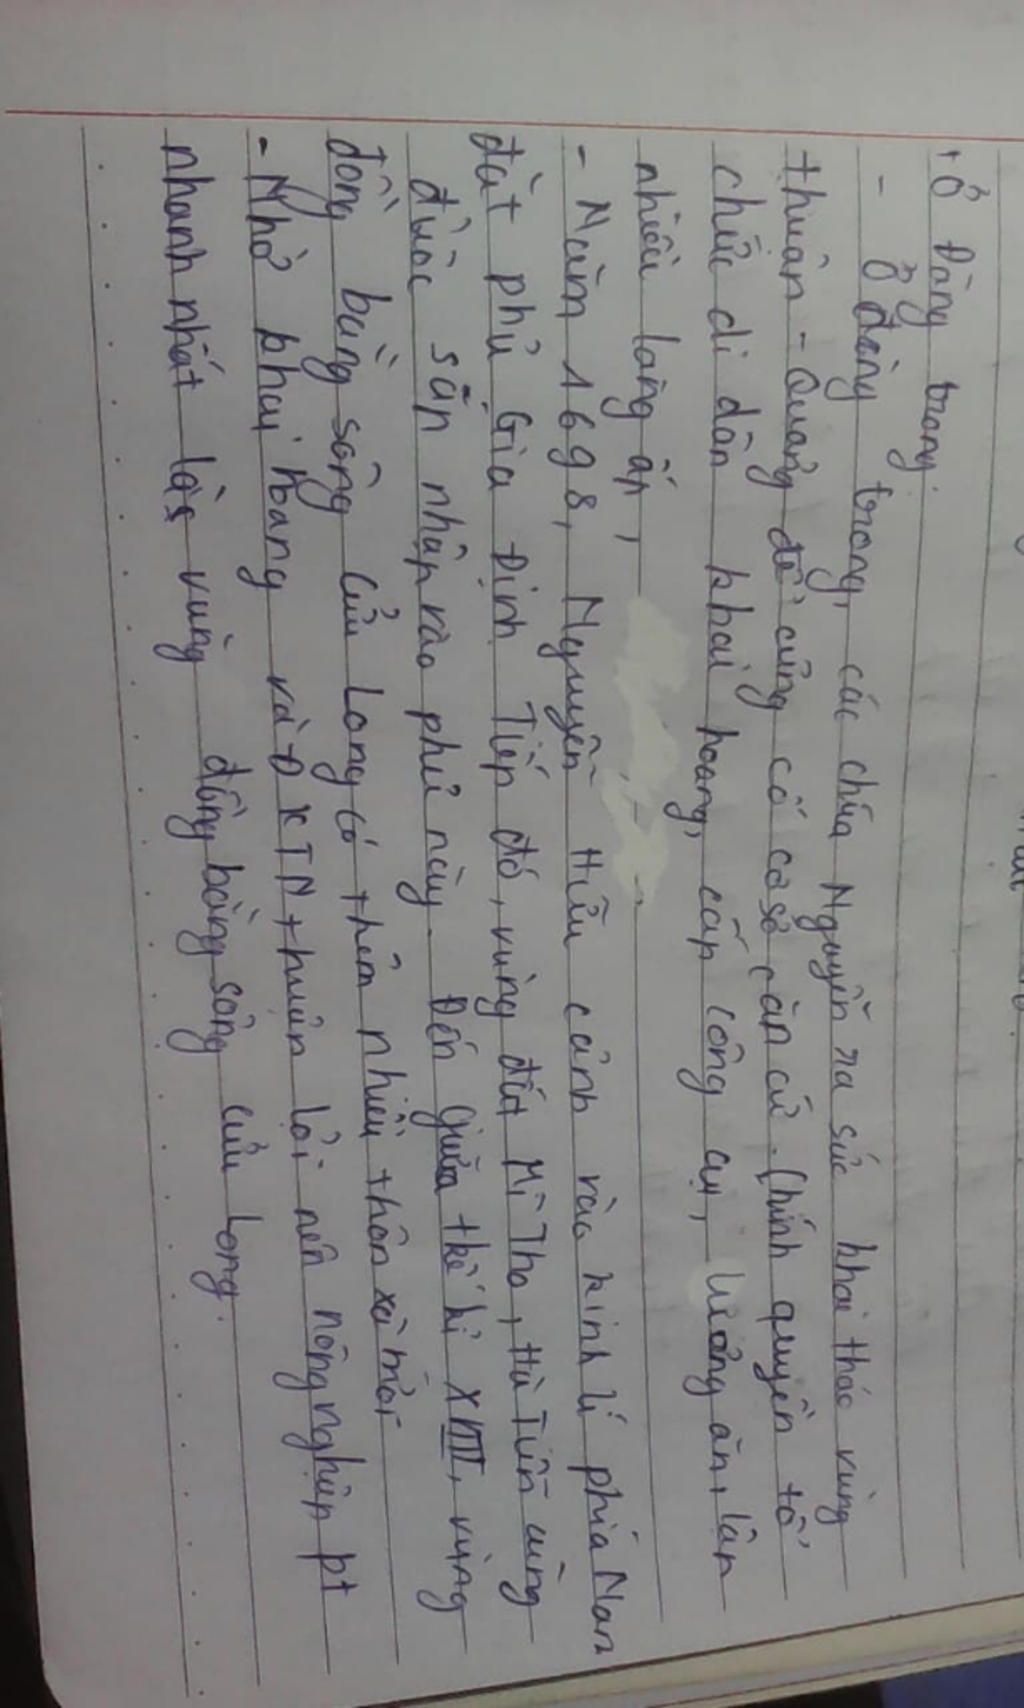 + Ở Đàng trong:
- Ở đàng trong, các chúa Nguyễn ra sức khai thác vùng
thuận - Quảng để củng cố cơ sở căn cứ. Chính quyền tổ
chức di dân khai hoang, cấp công cụ, lương ăn, lập
nhiều làng ấp,
- Năm 1698, Nguyễn Hữu cảnh vào kinh lí phía Nam
đặt phủ Gia Định Tiếp đó, vùng đất Mĩ Tho, Hà Tiên cũng
được sáp nhập vào phủ này. Đến giữa thế kỉ XVIII, vùng
đồng bằng sông Cửu Long có thêm nhiều thôn xã mới
- Nhờ khai hoang và ĐKTN thuận lợi nên nông nghiệp pt
nhanh nhất là vùng đồng bằng sông cửu long.